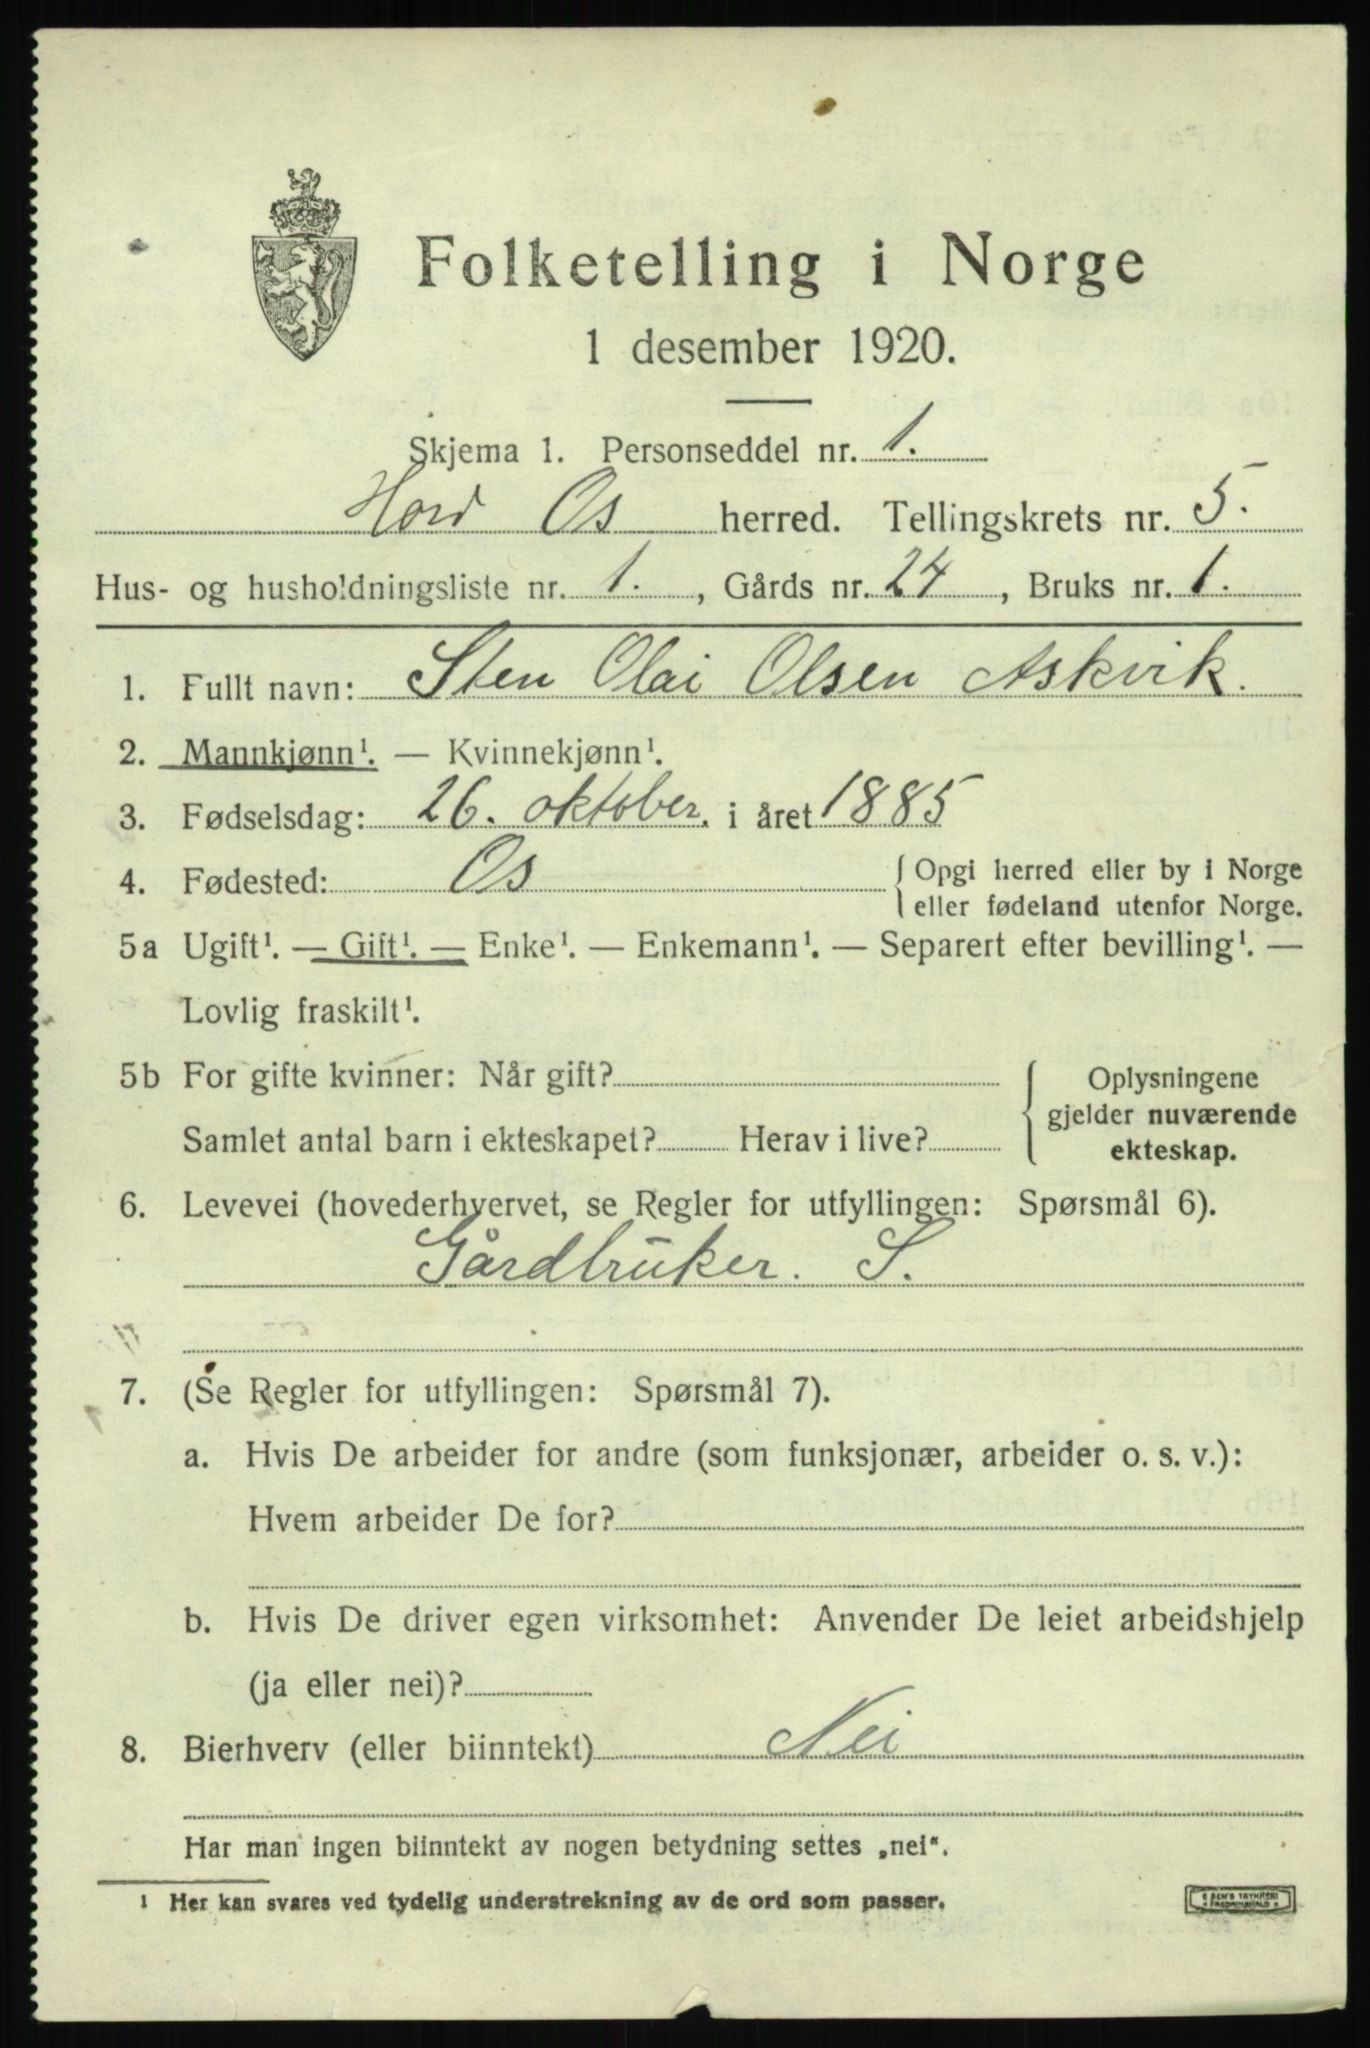 Folketelling i Norge
1 desember 1920.
Skjema 1. Personseddel nr. 1.
Hord Os herred. Tellingskrets nr. 5.
Hus- og husholdningsliste nr. 1., Gårds nr. 24, Bruks nr. 1.
1. Fullt navn: Sten Olai Olsen Askvik.
2. Mannkjønn¹. — Kvinnekjønn¹.
3. Fødselsdag: 26. oktober. i året 1885
4. Fødested: Os { Opgi herred eller by i Norge
eller fødeland utenfor Norge.
5a Ugift¹. — Gift¹. — Enke¹. — Enkemann¹. — Separert efter bevilling¹. —
Lovlig fraskilt¹.
5b For gifte kvinner: Når gift? { Oplysningene
gjelder nuværende
Samlet antal barn i ekteskapet? Herav i live? ekteskap.
6. Levevei (hovederhvervet, se Regler for utfyllingen: Spørsmål 6).
Gårdbruker. S.
7. (Se Regler for utfyllingen: Spørsmål 7).
a. Hvis De arbeider for andre (som funksjonær, arbeider o. s. v.):
Hvem arbeider De for?
b. Hvis De driver egen virksomhet: Anvender De leiet arbeidshjelp
(ja eller nei)?
8. Bierhverv (eller biinntekt) Nei
Har man ingen biinntekt av nogen betydning settes „nei“.
1 Her kan svares ved tydelig understrekning av de ord som passer.